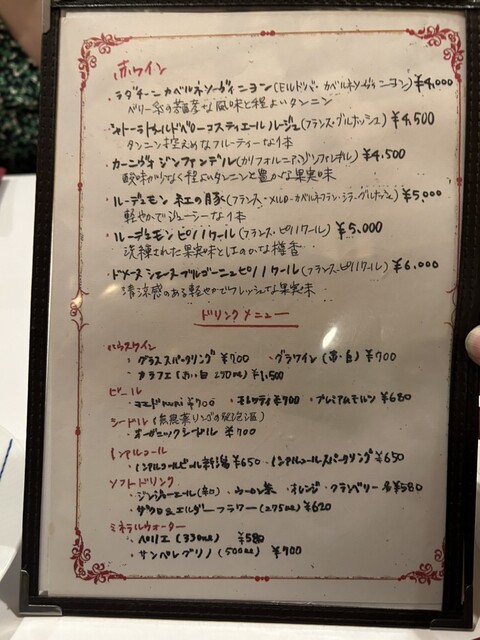 赤ワイン
・ラダチーニ カベルネソーヴィニヨン(モルドバ・カベルネソーヴィニヨン) ¥4,000
ベリー系の芳醇な風味と程よいタンニン
・シャトーラトゥールドベリー コスティエール ルージュ(フランス・グルナッシュ) ¥4,500
タンニン控えめなフルーティーな1本
・カーニヴォ ジンファンデル(カリフォルニア・ジンファンデル) ¥4,500
酸味が少なく程よいタンニンと豊かな果実味
・ルーデュモン 紅の豚(フランス・メルロー・カベルネフラン・シラー・グルナッシュ) ¥5,000
軽やかでジューシーな1本
・ルーデュモン ピノノワール(フランス・ピノノワール) ¥5,000
洗練された果実味とほのかな樽香
・ドメーヌ シェーヌ ブルゴーニュ ピノノワール(フランス・ピノノワール) ¥6,000
清涼感のある軽やかでフレッシュな果実味
ドリンクメニュー
ハウスワイン
・グラススパークリング ¥700 ・グラスワイン(赤・白) ¥700
・カラフェ(赤・白 270ml) ¥1,500
ビール
¥700 ・モレッティ ¥700 ・プレミアムモルツ ¥680
シードル(無農薬リンゴの発泡酒)
・オーガニックシードル ¥700
ノンアルコール
・ノンアルコールビール ¥650 ・ノンアルコールスパークリング ¥650
ソフトドリンク
・ジンジャーエール(辛口) ・ウーロン茶 ・オレンジ ・クランベリー 各¥580
・ザクロ&エルダーフラワー(275ml) ¥620
ミネラルウォーター
・ペリエ(330ml) ¥580
・サンペレグリノ(500ml) ¥700